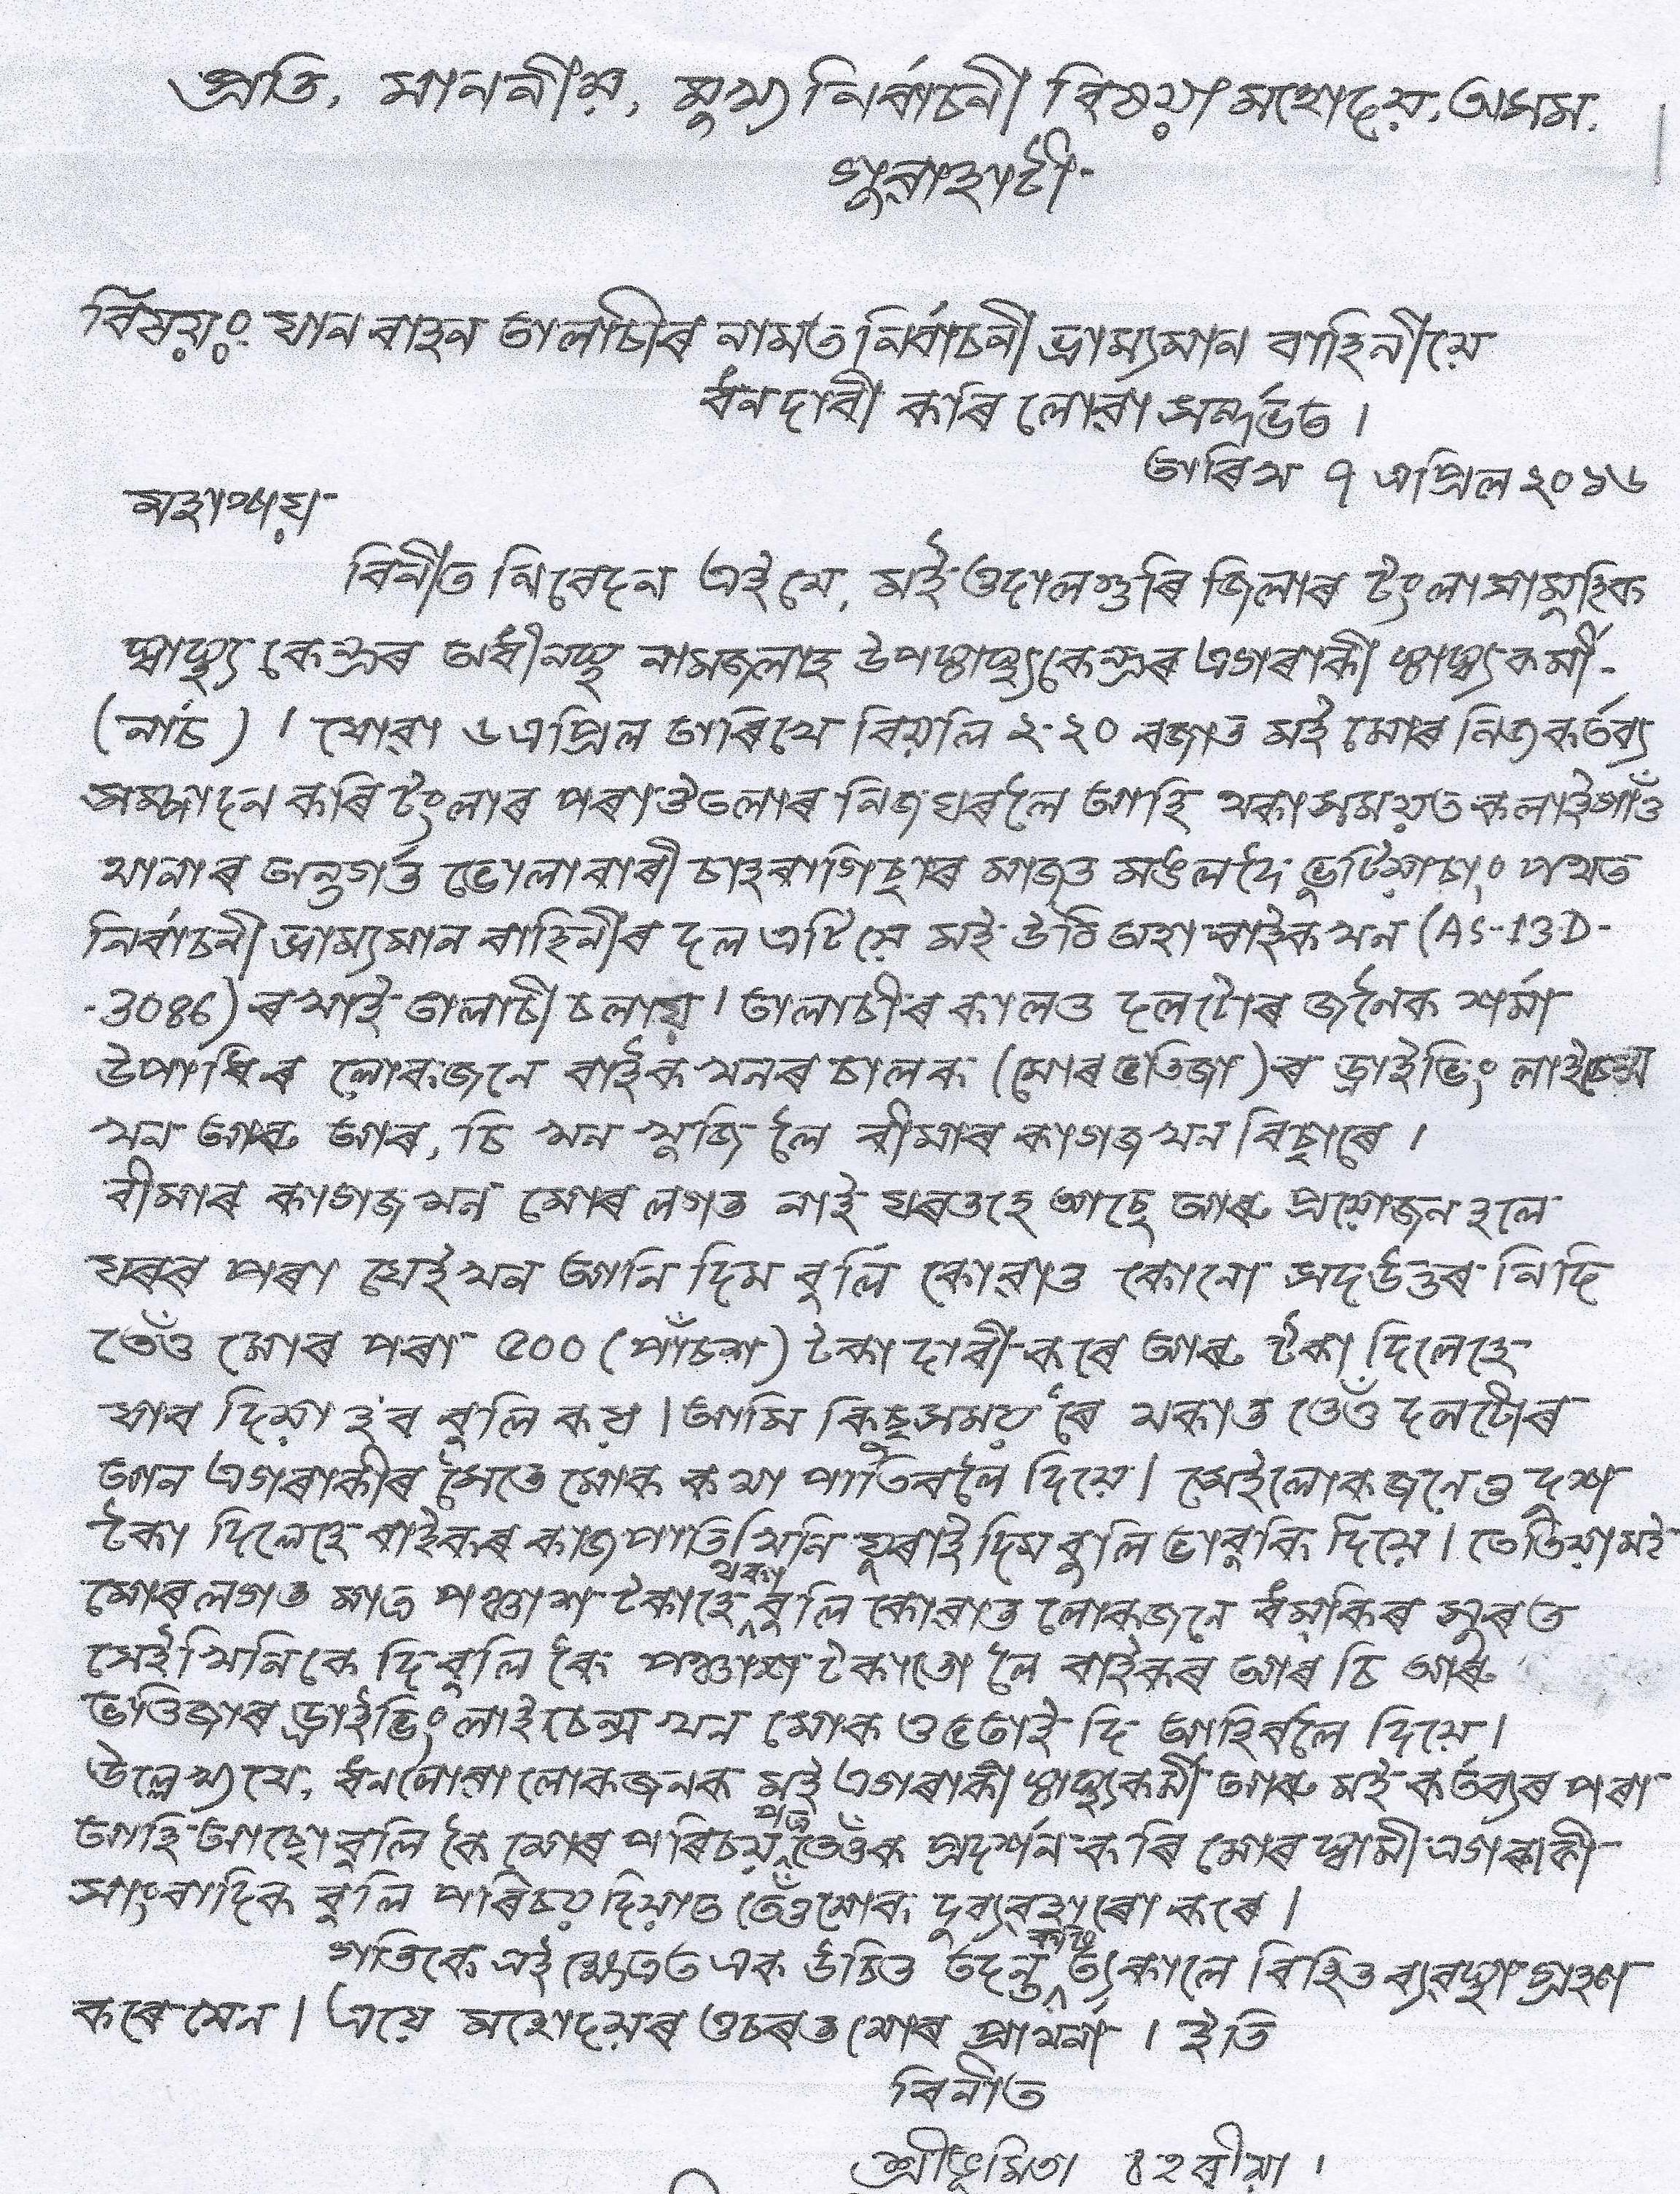 প্ৰতি, মাননীয়, মুখ্য নিৰ্বাচনী বিষয়া মহোদয়, অসম.
গুৱাহাটী-
বিষয়ঃ যান বাহন তালাচীৰ নামত নিৰ্বাচনী ভ্ৰাম্যমান বাহিনীয়ে
ধনদাবী কৰি লোৱা সন্দৰ্ভত ।
তাৰিখ ৭ এপ্ৰিল ২০১৬
মহাশয়
বিনীত নিবেদন এই যে, মই ওদালগুৰি জিলাৰ টংলা সামুহিক
স্বাস্থ্য কেন্দ্ৰৰ অধীনস্থ নামজলাহ উপস্বাস্থ্যকেন্দ্ৰৰ এগৰাকী স্বাস্থ্যকৰ্মী-
(নাৰ্চ) । যোৱা ৬ এপ্ৰিল তাৰিখে বিয়লি ২-২০ বজাত মই মোৰ নিজ কৰ্তব্য
সম্পাদন কৰি টংলাৰ পৰা ঔতলাৰ নিজ ঘৰলৈ আহি থকা সময়ত কলাইগাঁও
থানাৰ অন্তৰ্গত ভোলাবাৰী চাহবাগিছাৰ মাজত মঙলদৈ ভুটিয়াচাং পথত
নিৰ্বাচনী ভ্ৰাম্যমান বাহিনীৰ দল এটিয়ে মই উঠি অহা বাইক খন (AS-13-D-
-3086) ৰ খাই তালাচী চলায় । তালাচীৰ কালত দলটোৰ জনৈক শৰ্মা
উপাধিৰ লোকজনে বাইক খনৰ চালক (মোৰ ভতিজা) ৰ ড্ৰাইভিং লাইচেন্স
খন আৰু আৰ, চি খন খুজি লৈ বীমাৰ কাগজ খন বিছাৰে ।
বীমাৰ কাগজ খন মোৰ লগত নাই ঘৰতহে আছে আৰু প্ৰয়োজন হলে
ঘৰৰ পৰা সেইখন আনি দিম বুলি কোৱাত কোনো সদউত্তৰ নিদি
তেওঁ মোৰ পৰা ৫০০ (পাঁচশ) টকা দাবী কৰে আৰু টকা দিলেহে
যাব দিয়া হ'ব বুলি কয় । আমি কিছুসময় ৰৈ থকাত তেওঁ দলটোৰ
আন এগৰাকীৰ সৈতে মোক কথা পাতিবলৈ দিয়ে । সেইলোকজনেও দুশ
টকা দিলেহে বাইকৰ কাজপাতিখিনি ঘূৰাই দিম বুলি ভাবুকি দিয়ে । তেতিয়া মই
মোৰ লগত মাত্ৰ পঞ্চাশ টকাহে থকা বুলি কোৱাত লোকজনে ধমকিৰ সুৰত
সেইখিনিকে দি বুলি কৈ পঞ্চাশ টকাতো লৈ বাইকৰ আৰ চি আৰু
ভতিজাৰ ড্ৰাইভিং লাইচেন্স খন মোক ওভতাই দি আহিবলৈ দিয়ে ।
উল্লেখ্য যে, ধনলোৱা লোকজনক মই এগৰাকী স্বাস্থ্যকৰ্মী আৰু মই কৰ্তব্যৰ পৰা
আহি আছো বুলি কৈ মোৰ পৰিচয় পত্ৰ তেওঁক প্ৰদৰ্শন কৰি মোৰ স্বামী এগৰাকী
সাংবাদিক বুলি পৰিচয় দিয়াত তেওঁ মোক দুব্যৱহাৰো কৰে ।
গতিকে এই ক্ষেত্ৰত এক উচিত তদন্ত কৰি ত্যকালে বিহিত ব্যৱস্থা গ্ৰহণ
কৰে যেন । এয়ে মহোদয়ৰ ওচৰত মোৰ প্ৰাৰ্থনা । ইতি
বিনীত
শ্ৰী চহৰীয়া ।